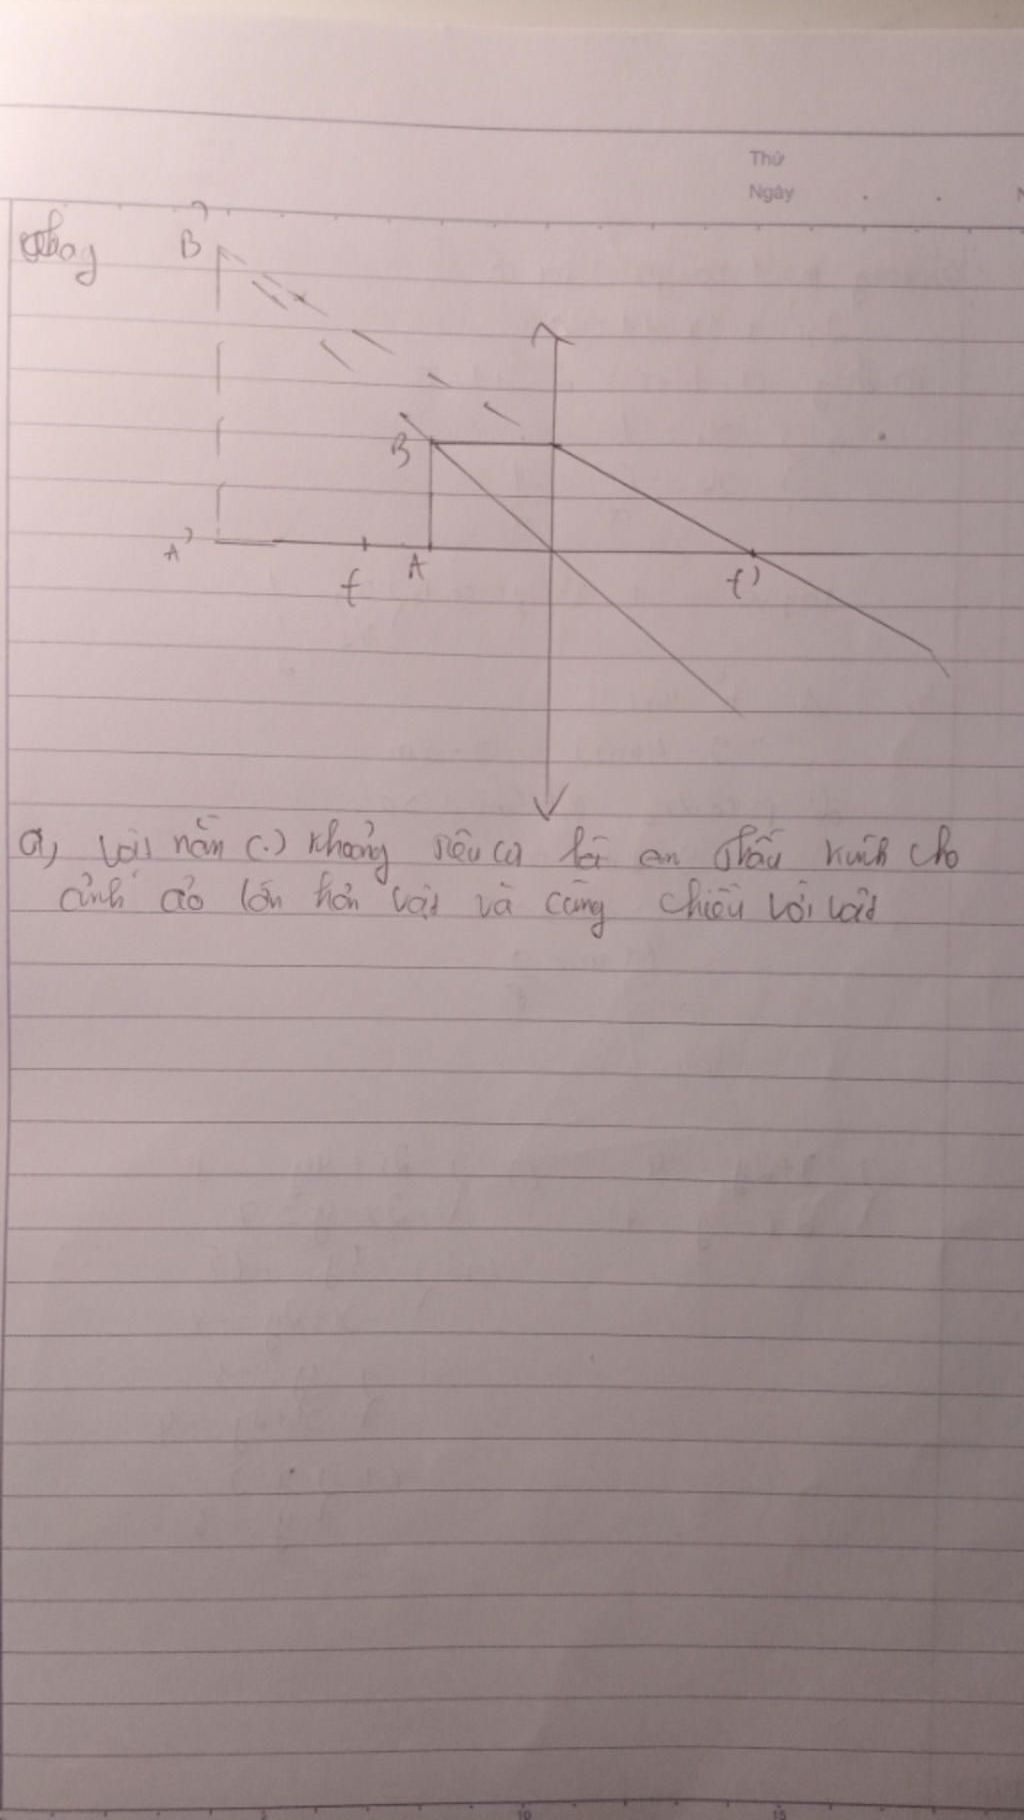 Thứ
Ngày
B'
B
A'
f
A
f'
a, vật nằm (.) khoảng tiêu cự thấu kính cho
ảnh ảo lớn hơn vật và cùng chiều với vật
5
10
15